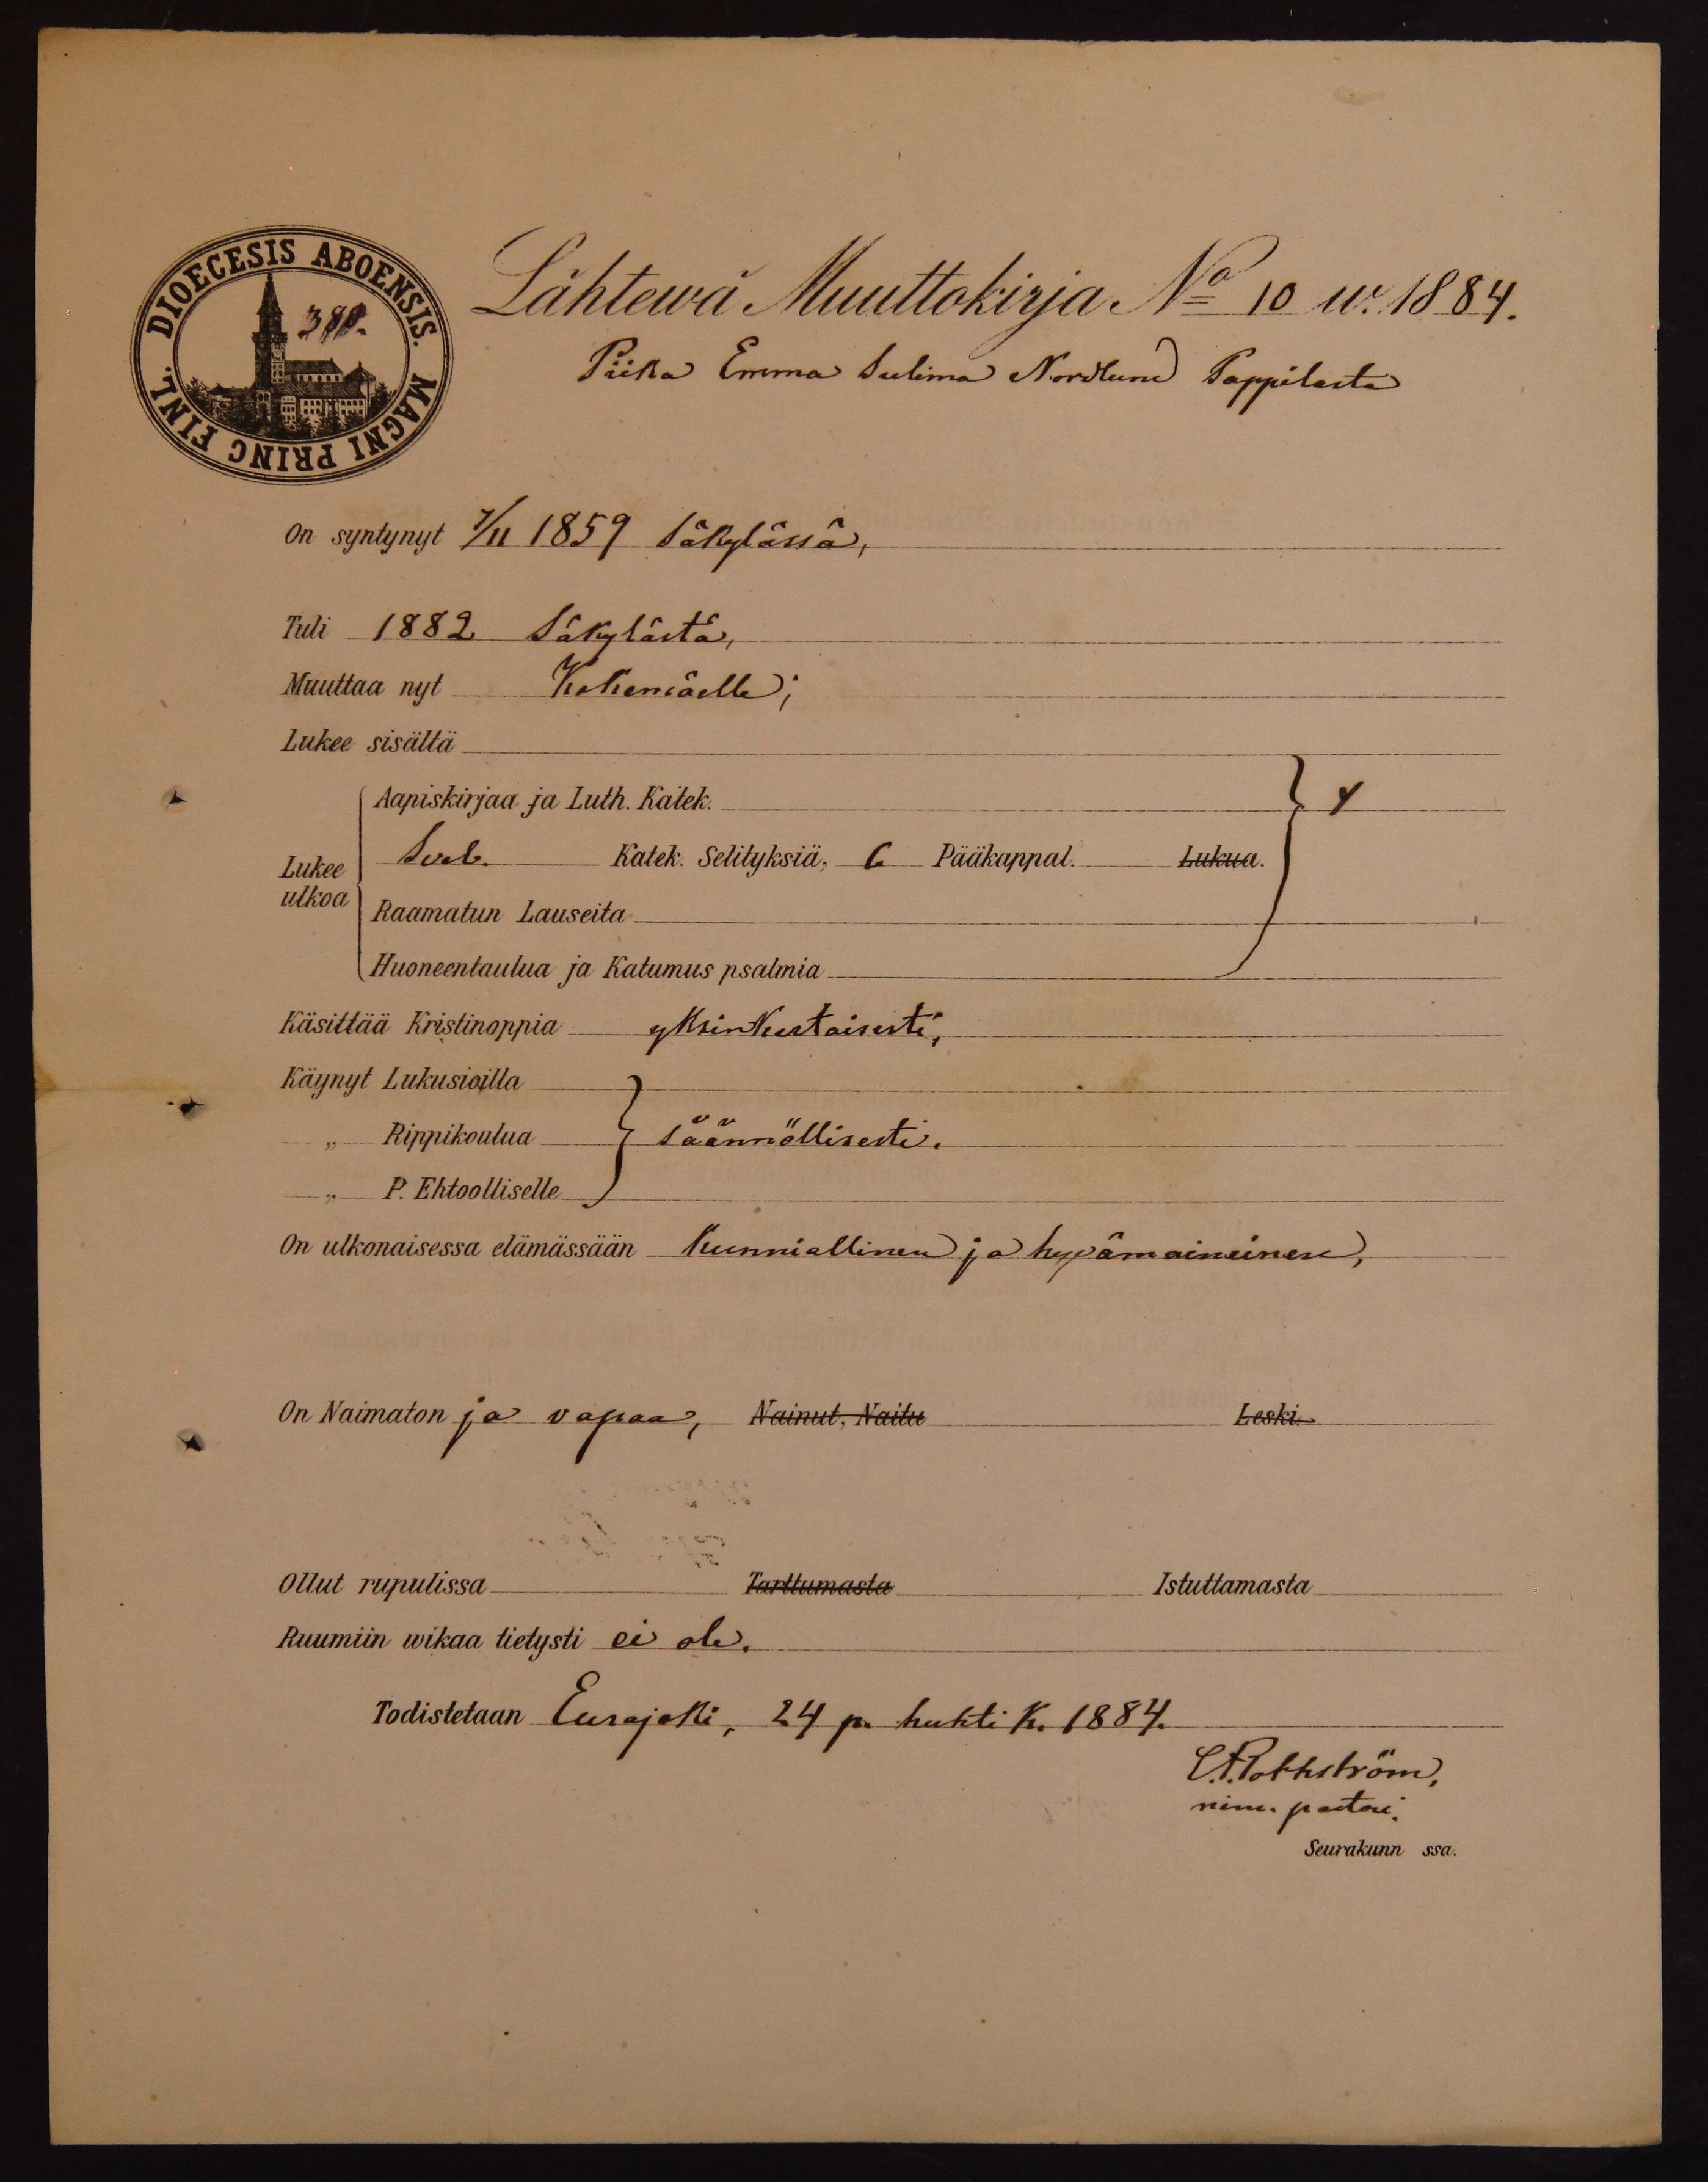 DIOECESIS ABOENSIS. MAGNI PRINC FINL.
Lähtewä Muuttokirja No 10 w. 1884.
Piika Emma Seelima Nordlund Pappilasta
On syntynyt 7/11 1859 Säkylässä,
Tuli 1882 Säkylästä,
Muuttaa nyt Kokemäelle;
Lukee sisältä
Aapiskirjaa ja Luth. Katek.
Lukee ulkoa Sveb. Katek. Selityksiä, 6 Pääkappal. Lukua.
Raamatun Lauseita
Huoneentaulua ja Katumus psalmia
Käsittää Kristinoppia yksinkertaisesti,
Käynyt Lukusioilla
„ Rippikoulua säännöllisesti.
„ P. Ehtoolliselle
On ulkonaisessa elämässään kunniallinen ja hyvämaineinen,
On Naimaton ja vapaa, Nainut, Naitu Leski.
Ollut rupulissa Tarttumasta Istuttamasta
Ruumiin wikaa tietysti ei ole.
Todistetaan Eurajoki, 24 p. huhti k. 1884.
nim. pastori.
Seurakunn ssa.